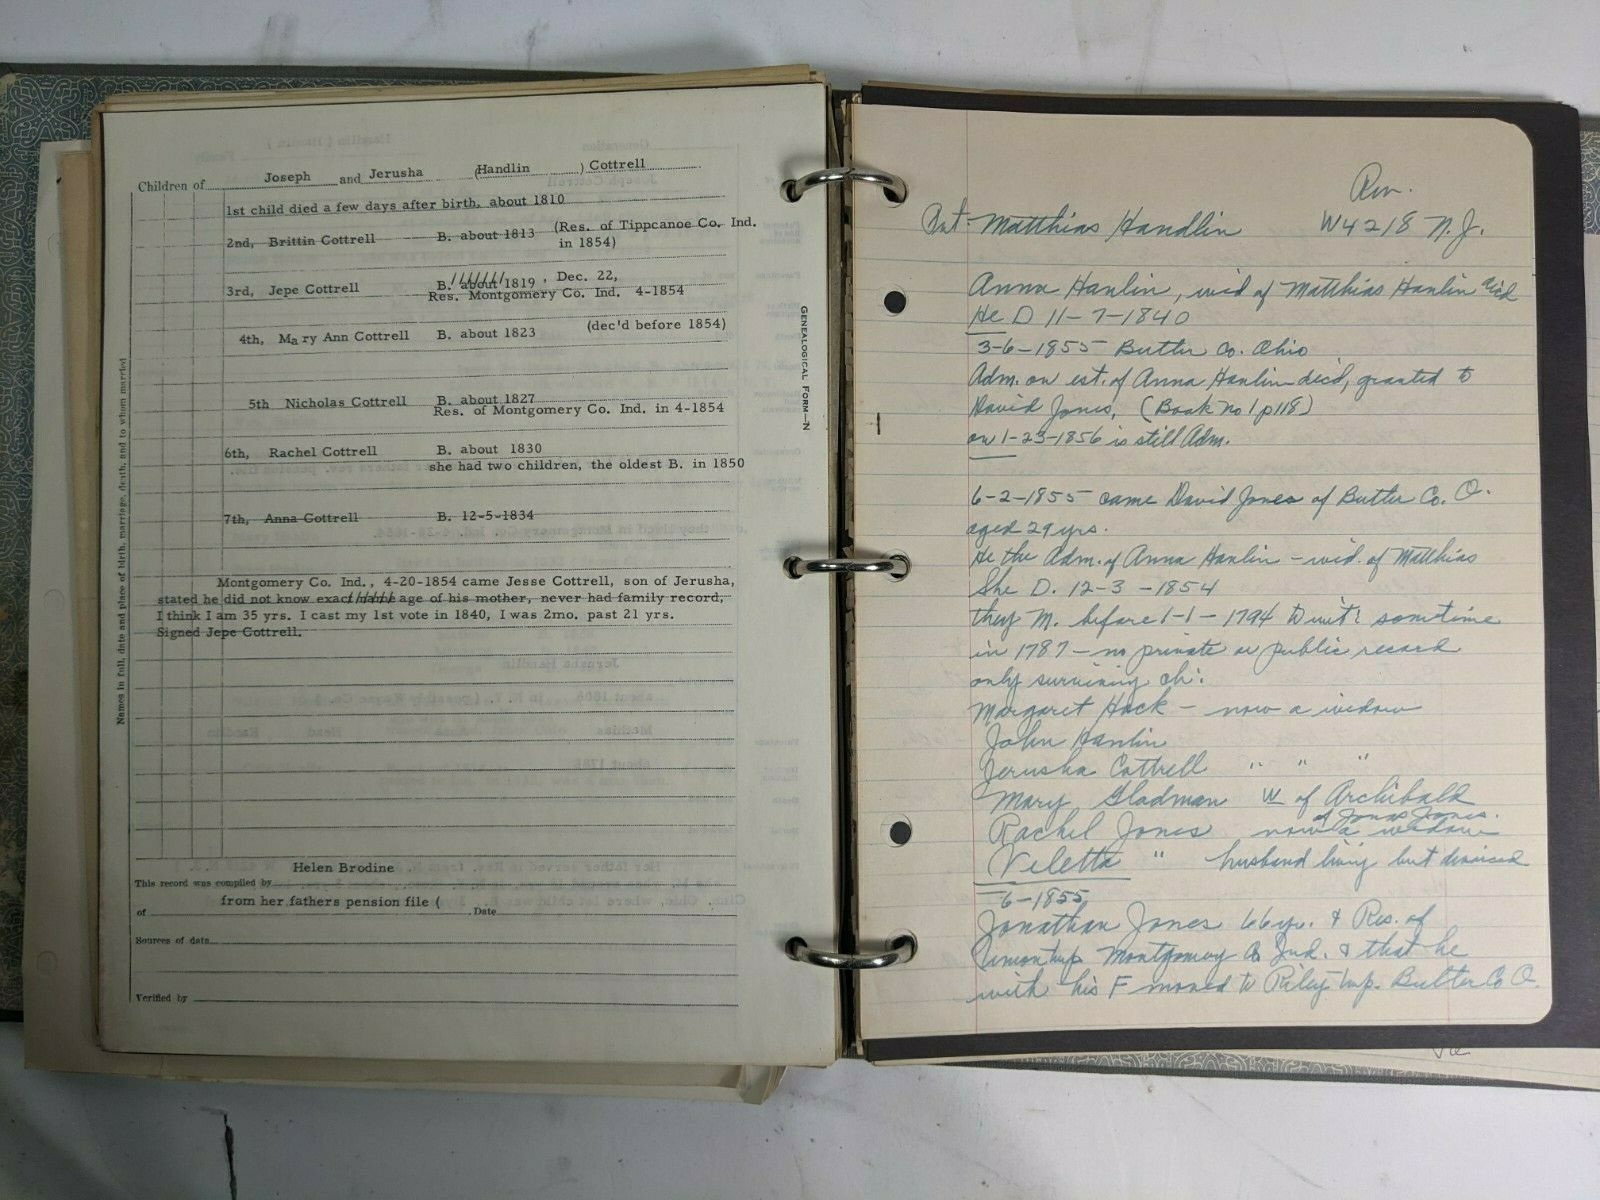 Children of Joseph and Jerusha (Handlin ) Cottrell
1st child died a few days after birth, about 1810
2nd, Brittin Cottrell B. about 1813 (Res. of Tippcanoe Co. Ind.
in 1854)
3rd, Jepe Cottrell B. about 1819 , Dec. 22,
Res. Montgomery Co. Ind. 4-1854
4th, Mary Ann Cottrell B. about 1823 (dec'd before 1854)
5th Nicholas Cottrell B. about 1827
Res. of Montgomery Co. Ind. in 4-1854
6th, Rachel Cottrell B. about 1830
she had two children, the oldest B. in 1850
7th, Anna Cottrell B. 12-5-1834
Montgomery Co. Ind., 4-20-1854 came Jesse Cottrell, son of Jerusha,
stated he did not know exact name age of his mother, never had family record,
I think I am 35 yrs. I cast my 1st vote in 1840, I was 2mo. past 21 yrs.
Signed Jepe Cottrell.
Names in full, date and place of birth, marriage, death, and to whom married
GENEALOGICAL FORM—N
Helen Brodine
This record was compiled by
from her fathers pension file (
of Date
Sources of data
Verified by
Rev.
Matthias Handlin W4218 N.J.
Anna Hanlin, wid of Matthias Hanlin dec'd
He D 11-7-1840
3-6-1855 Butler Co. Ohio
Adm. on est. of Anna Hanlin dec'd, granted to
David Jones, (Book no 1 p 118)
on 1-23-1856 is still Adm.
6-2-1855 came David Jones of Butler Co. O.
aged 29 yrs.
He the Adm. of Anna Hanlin - wid. of Matthias
She D. 12-3-1854
they M. before 1-1-1794 to wit: sometime
in 1787 - no private or public record
only surviving ch:
Margaret Hack - now a widow
John Hanlin
Jerusha Cottrell " " "
Mary Gladman W of Archibald
of Jonas Jones.
Rachel Jones now a widow
Viletta " husband living but divorced
6-1855
Jonathan Jones 66 yr. & Res. of
Union twp Montgomery Co Ind. & that he
with his F moved to Riley twp. Butler Co O.